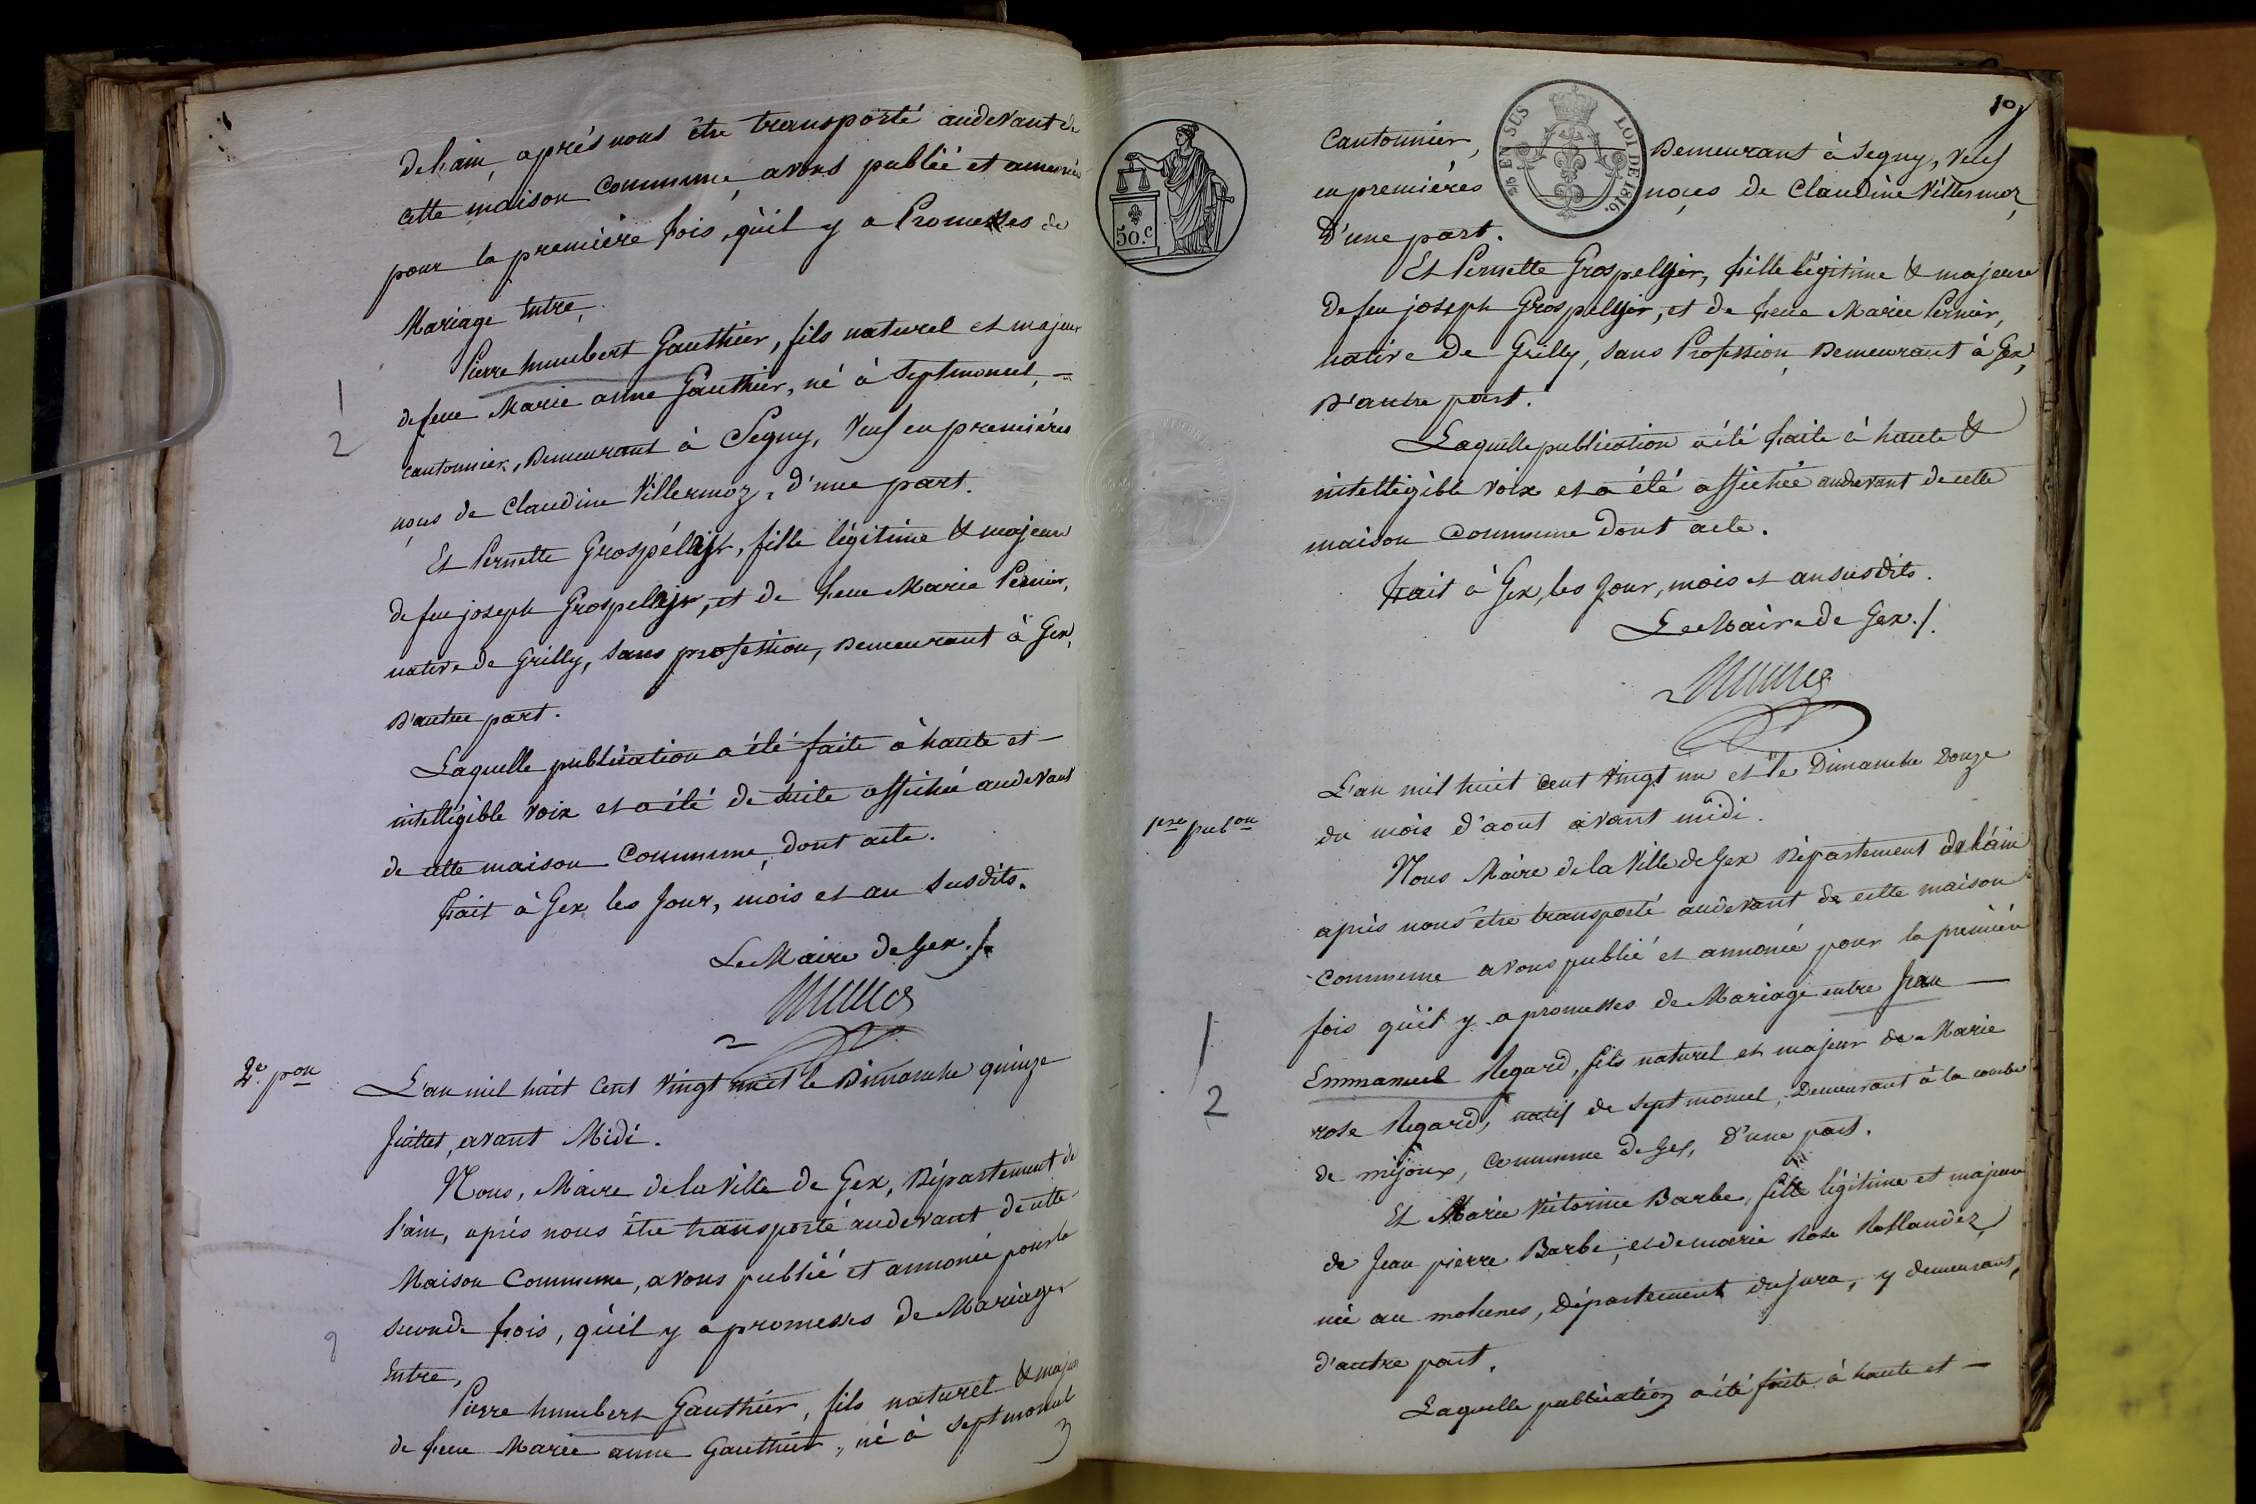 de l'ain, après nous être transporté audevant de
cette maison commune, avons publié et annoncé
pour la première fois, qu'il y a Promesses de
Mariage Entre,
Pierre humbert Gauthier, fils naturel et majeur
1
de feue Marie anne Gauthier, né à Septmoncel, —
2
cantonnier, Demeurant à Segny, Veuf en premières
noçes de Claudine Villermoz, d'une part.
Et Pernette Grospéllier, fille légitime & majeure
de feu joseph Grospellier, et de feue Marie Pernier,
native de Grilly, sans profession, Demeurant à Gex,
D'autre part.
Laquelle publication a été faite à haute et —
intelligible voix et a été de suite affichée audevant
de cette maison Commune, dont acte.
Fait à Gex les Jour, mois et an susdits.
Le Maire de Gex ./.
2e. pon
L'an mil huit Cent Vingt un et le Dimanche quinze
Juillet, avant Midi.
Nous, Maire de la Ville de Gex, Département de
l'ain, après nous être transporté audevant de cette
Maison Commune, avons publié et annoncé pour la
seconde fois, qu'il y a promesses de Mariage
Entre,
Pierre humbert Gauthier, fils naturel & majeur
de feue Marie anne Gauthier, né à septmoncel
10
50.c
EN SUS LOI DE 1816.
Cantonnier, Demeurant à Segny, Veuf
en premières noçes de Claudine Villermoz,
D'une part.
Et Pernette Grospellier, fille légitime & majeure
de feu joseph Grospellier, et de feue Marie Pernier,
native de Grilly, sans Profession, Demeurant à Gex,
D'autre part.
Laquelle publication a été faite à haute &
intelligible voix et a été affichée audevant de cette
maison Commune dont acte.
Fait à Gex, les Jour, mois et an susdits.
Le Maire de Gex ./.
L'an mil huit cent vingt un et le Dimanche Douze
1ere pubon
du mois d'aout avant midi.
Nous Maire de la Ville de Gex Département de l'ain
après nous être transporté audevant de cette maison
Commune avons publié et annoncé pour la première
fois qu'il y a promesses de Mariage entre Jean —
1
Emmanuel Regard, fils naturel et majeur de Marie
2
rose Regard, natif de septmoncel, Demeurant à la combe
de mijoux, Commune de Gex, d'une part.
Et Marie Victorine Barbe, fille légitime et majeure
de Jean pierre Barbe, et de marie Rose Rollandez,
née au molunes, Département du jura, y demeurant,
d'autre part.
Laquelle publication a été faite à haute et —